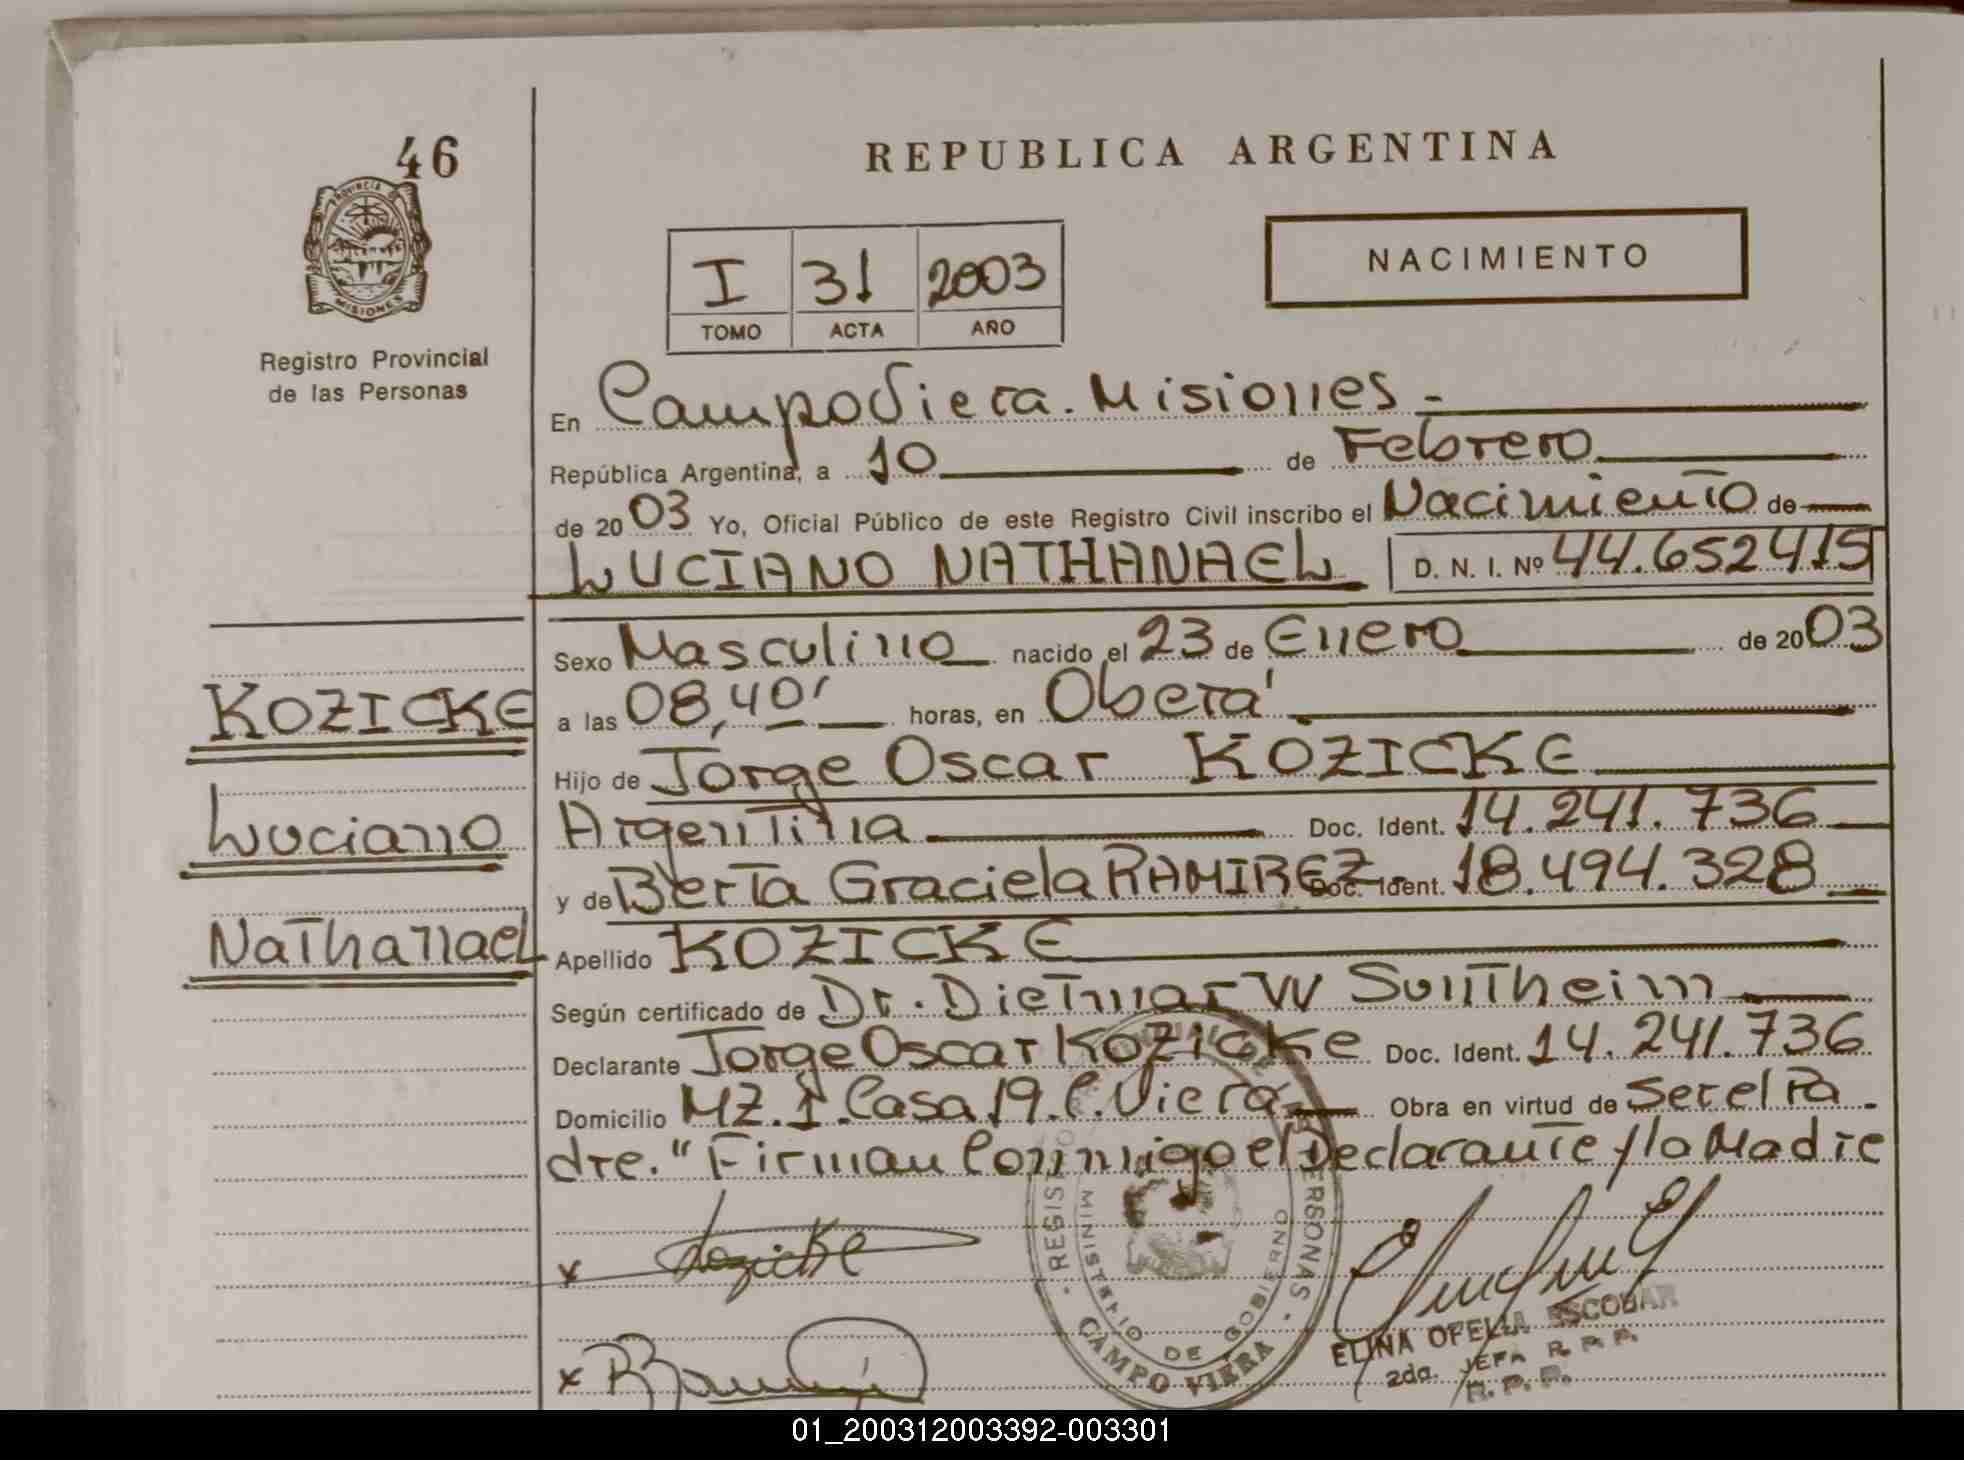 46
PROVINCIA DE
MISIONES
Registro Provincial
de las Personas
REPUBLICA ARGENTINA
I 31 2003
TOMO ACTA AÑO
NACIMIENTO
En Campo Viera. Misiones -
República Argentina, a 10 de Febrero
de 2003 Yo, Oficial Público de este Registro Civil inscribo el Nacimiento de
LUCIANO NATHANAEL D. N. I. Nº 44.652415
Sexo Masculino nacido el 23 de Enero de 2003
KOZICKE
a las 08,40' horas, en Oberá
Hijo de Jorge Oscar KOZICKE
Luciano
Argentina Doc. Ident. 14.241.736
y de Berta Graciela RAMIREZ- Doc. Ident. 18.494.328
Nathanael
Apellido KOZICKE
Según certificado de Dr. Dietmar W Suntheim
Declarante Jorge Oscar Kozicke Doc. Ident. 14.241.736
Domicilio MZ. 1. Casa 19. C. Viera Obra en virtud de Ser el Pa
dre." Firman Conmigo el Declarante y la Madre
x Kozicke
REGISTRO PERSONAS
MINISTERIO DE GOBIERNO
CAMPO VIERA
ELINA OFELIA ESCOBAR
2da. JEFA R. P. P.
R. P. P.
x
01_200312003392-003301